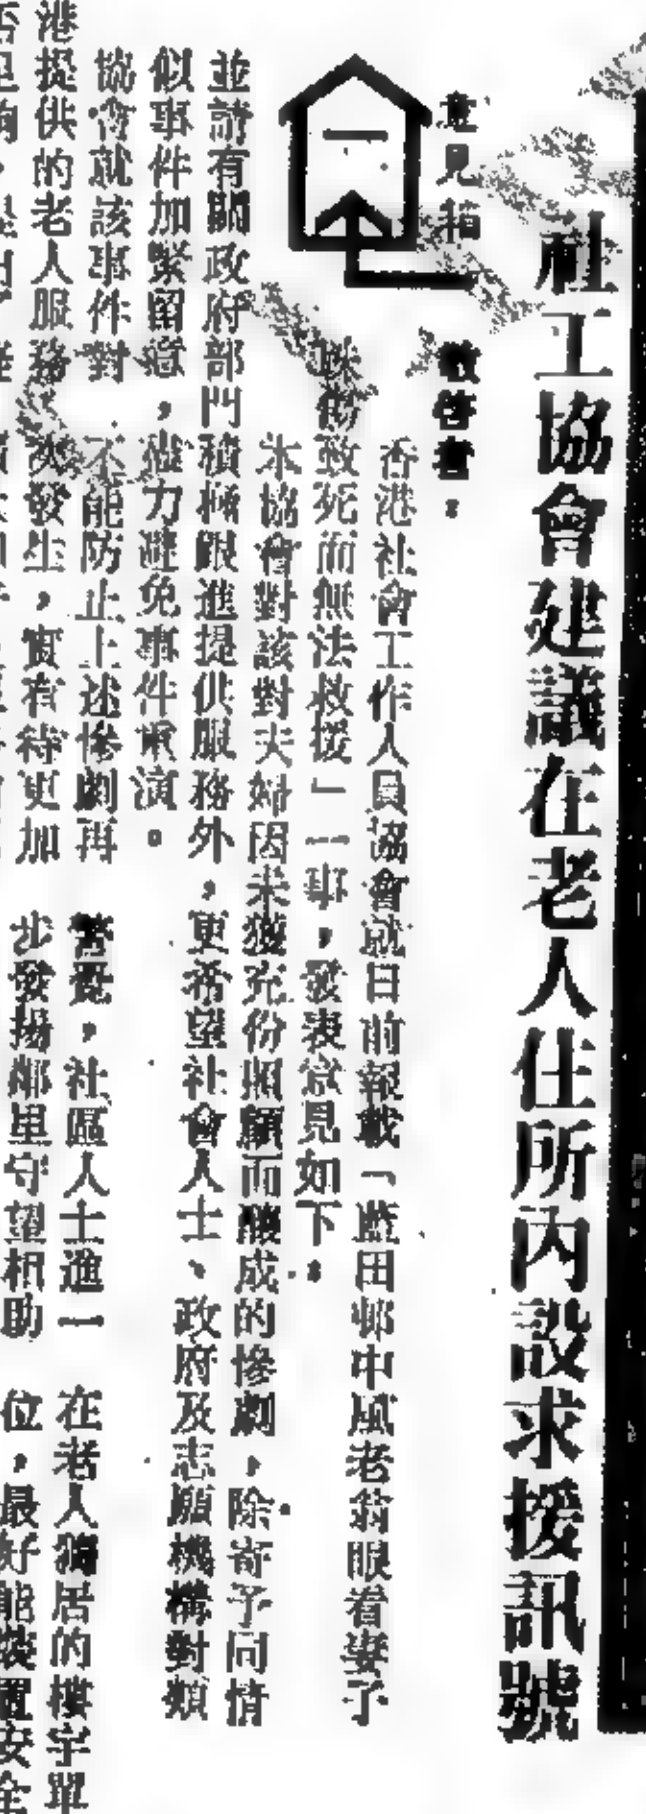 社工協會建議在老人住所內設求援訊號
意見箱
敬啓者：
香港社會工作人員協會就日前報載「藍田邨中風老翁眼看妻子
跌傷致死而無法救援」一事，發表意見如下：
本協會對該對夫婦因未獲充份照顧而釀成的慘劇，除寄予同情
並請有關政府部門積極跟進提供服務外，更希望社會人士、政府及志願機構對類
似事件加緊留意，盡力避免事件重演。
協會就該事件對
港提供的老人服務
不能防止上述慘劇再
次發生，實有待更加
警覺，社區人士進一
步發揚鄰里守望相助
在老人獨居的樓宇單
位，最好能裝置安全